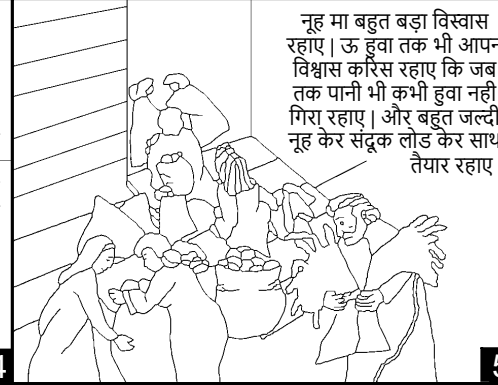 नूह मा बहुत बड़ा विस्वास
रहाए | ऊ हुवा तक भी आपन
विश्वास करिस रहाए कि जब
तक पानी भी कभी हुवा नही
गिरा रहाए | और बहुत जल्दी
नूह केर संदूक लोड केर साथ
तैयार रहाए